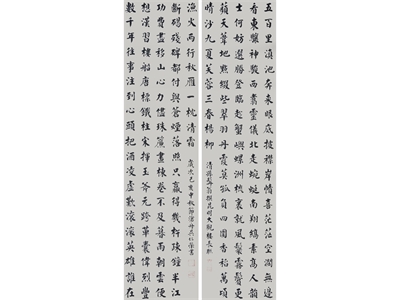 五百里滇池奔來眼底披襟岸幘喜茫茫空闊無邊
看東驤神駿西翥靈儀北走蜿蜒南翔縞素高人韻
士何妨選勝登臨趁蟹嶼螺洲梳裹就風鬟霧鬢更
蘋天葦地點綴些翠羽丹霞莫孤負四圍香稻萬頃
晴沙九夏芙蓉三春楊柳
清孫髯翁撰昆明大觀樓長聯
數千年往事注到心頭把酒凌虛歎滾滾英雄誰在
想漢習樓船唐標鐵柱宋揮玉斧元跨革囊偉烈豐
功費盡移山心力儘珠簾畫棟卷不及暮雨朝雲便
斷碣殘碑都付與蒼煙落照只贏得幾杵疏鐘半江
漁火兩行秋雁一枕清霜
歲次己亥中秋節書